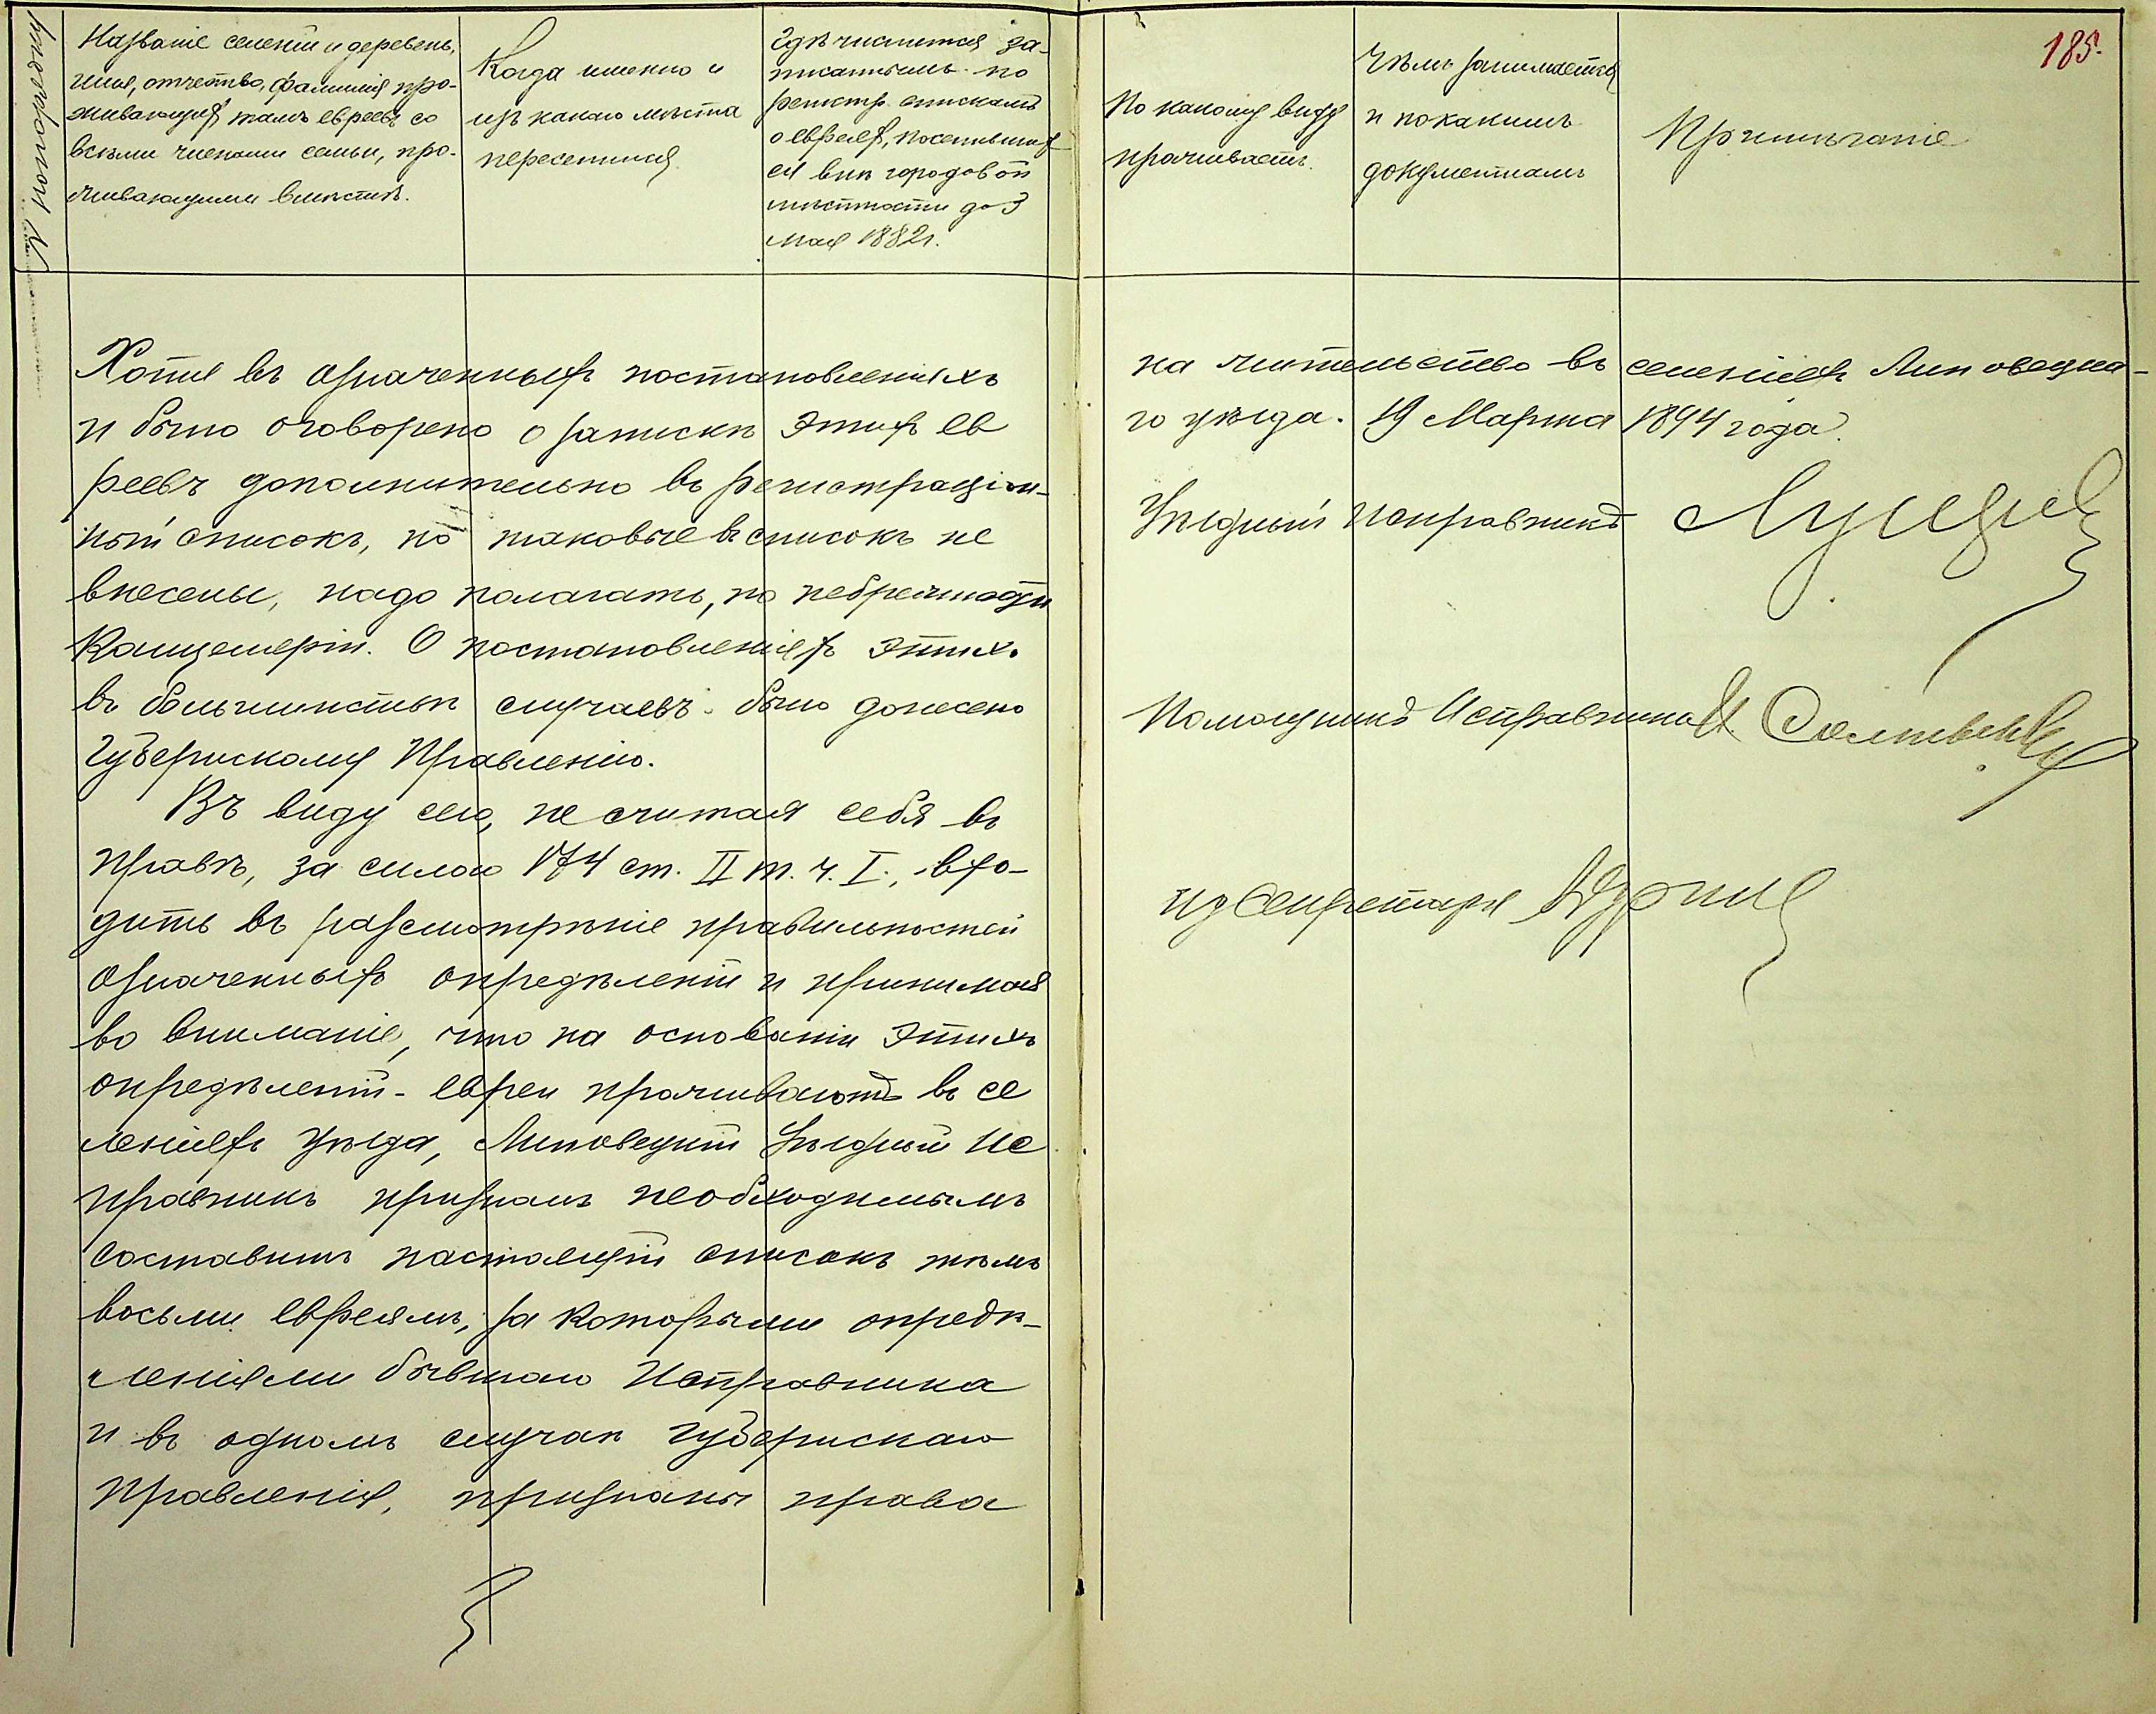 № по порядку
Названіе селеній и деревень,
имя, отчество, фамилія про-
живающихъ тамъ евреевъ со
всѣми членами семьи, про-
живающими вмѣстѣ.
Когда именно и
изъ какого мѣста
переселился
Гдѣ числится за-
писаннымъ по
регистр. спискамъ
о евреяхъ, поселивших
ся внѣ городовой
мѣстности до 3
мая 1882 г.
По какому виду
проживаетъ.
Чѣмъ занимается
и по какимъ
документамъ
Примѣчаніе
185.
Хотя въ означенныхъ постановленіяхъ
и было оговорено о запискѣ этихъ ев
реевъ дополнительно въ регистраціон-
ный списокъ, но таковые въ списокъ не
внесены, надо полагать, по небрежности
Канцеляріи. О постановленіяхъ этихъ
въ большинствѣ случаевъ было донесено
Губернскому Правленію.
Въ виду сего, не считая себя въ
правѣ, за силою 174 ст. II т. ч. I., вхо-
дить въ разсмотрѣніе правильностей
означенныхъ опредѣленій и принимая
во вниманіе, что на основаніи этихъ
опредѣленій - евреи проживаютъ въ се
леніяхъ уѣзда, Липовецкій Уѣздный Ис
правникъ призналъ необходимымъ
составить настоящій списокъ тѣмъ
восьми евреямъ, за которыми опредѣ-
леніями бывшаго Исправника
и въ одномъ случаѣ Губернскаго
Правленія, признаны права
на жительство въ селеніяхъ Липовецка-
го уѣзда. 19 Марта 1894 года.
Уѣздный Исправникъ
Помощникъ Исправника
ид Секретаря